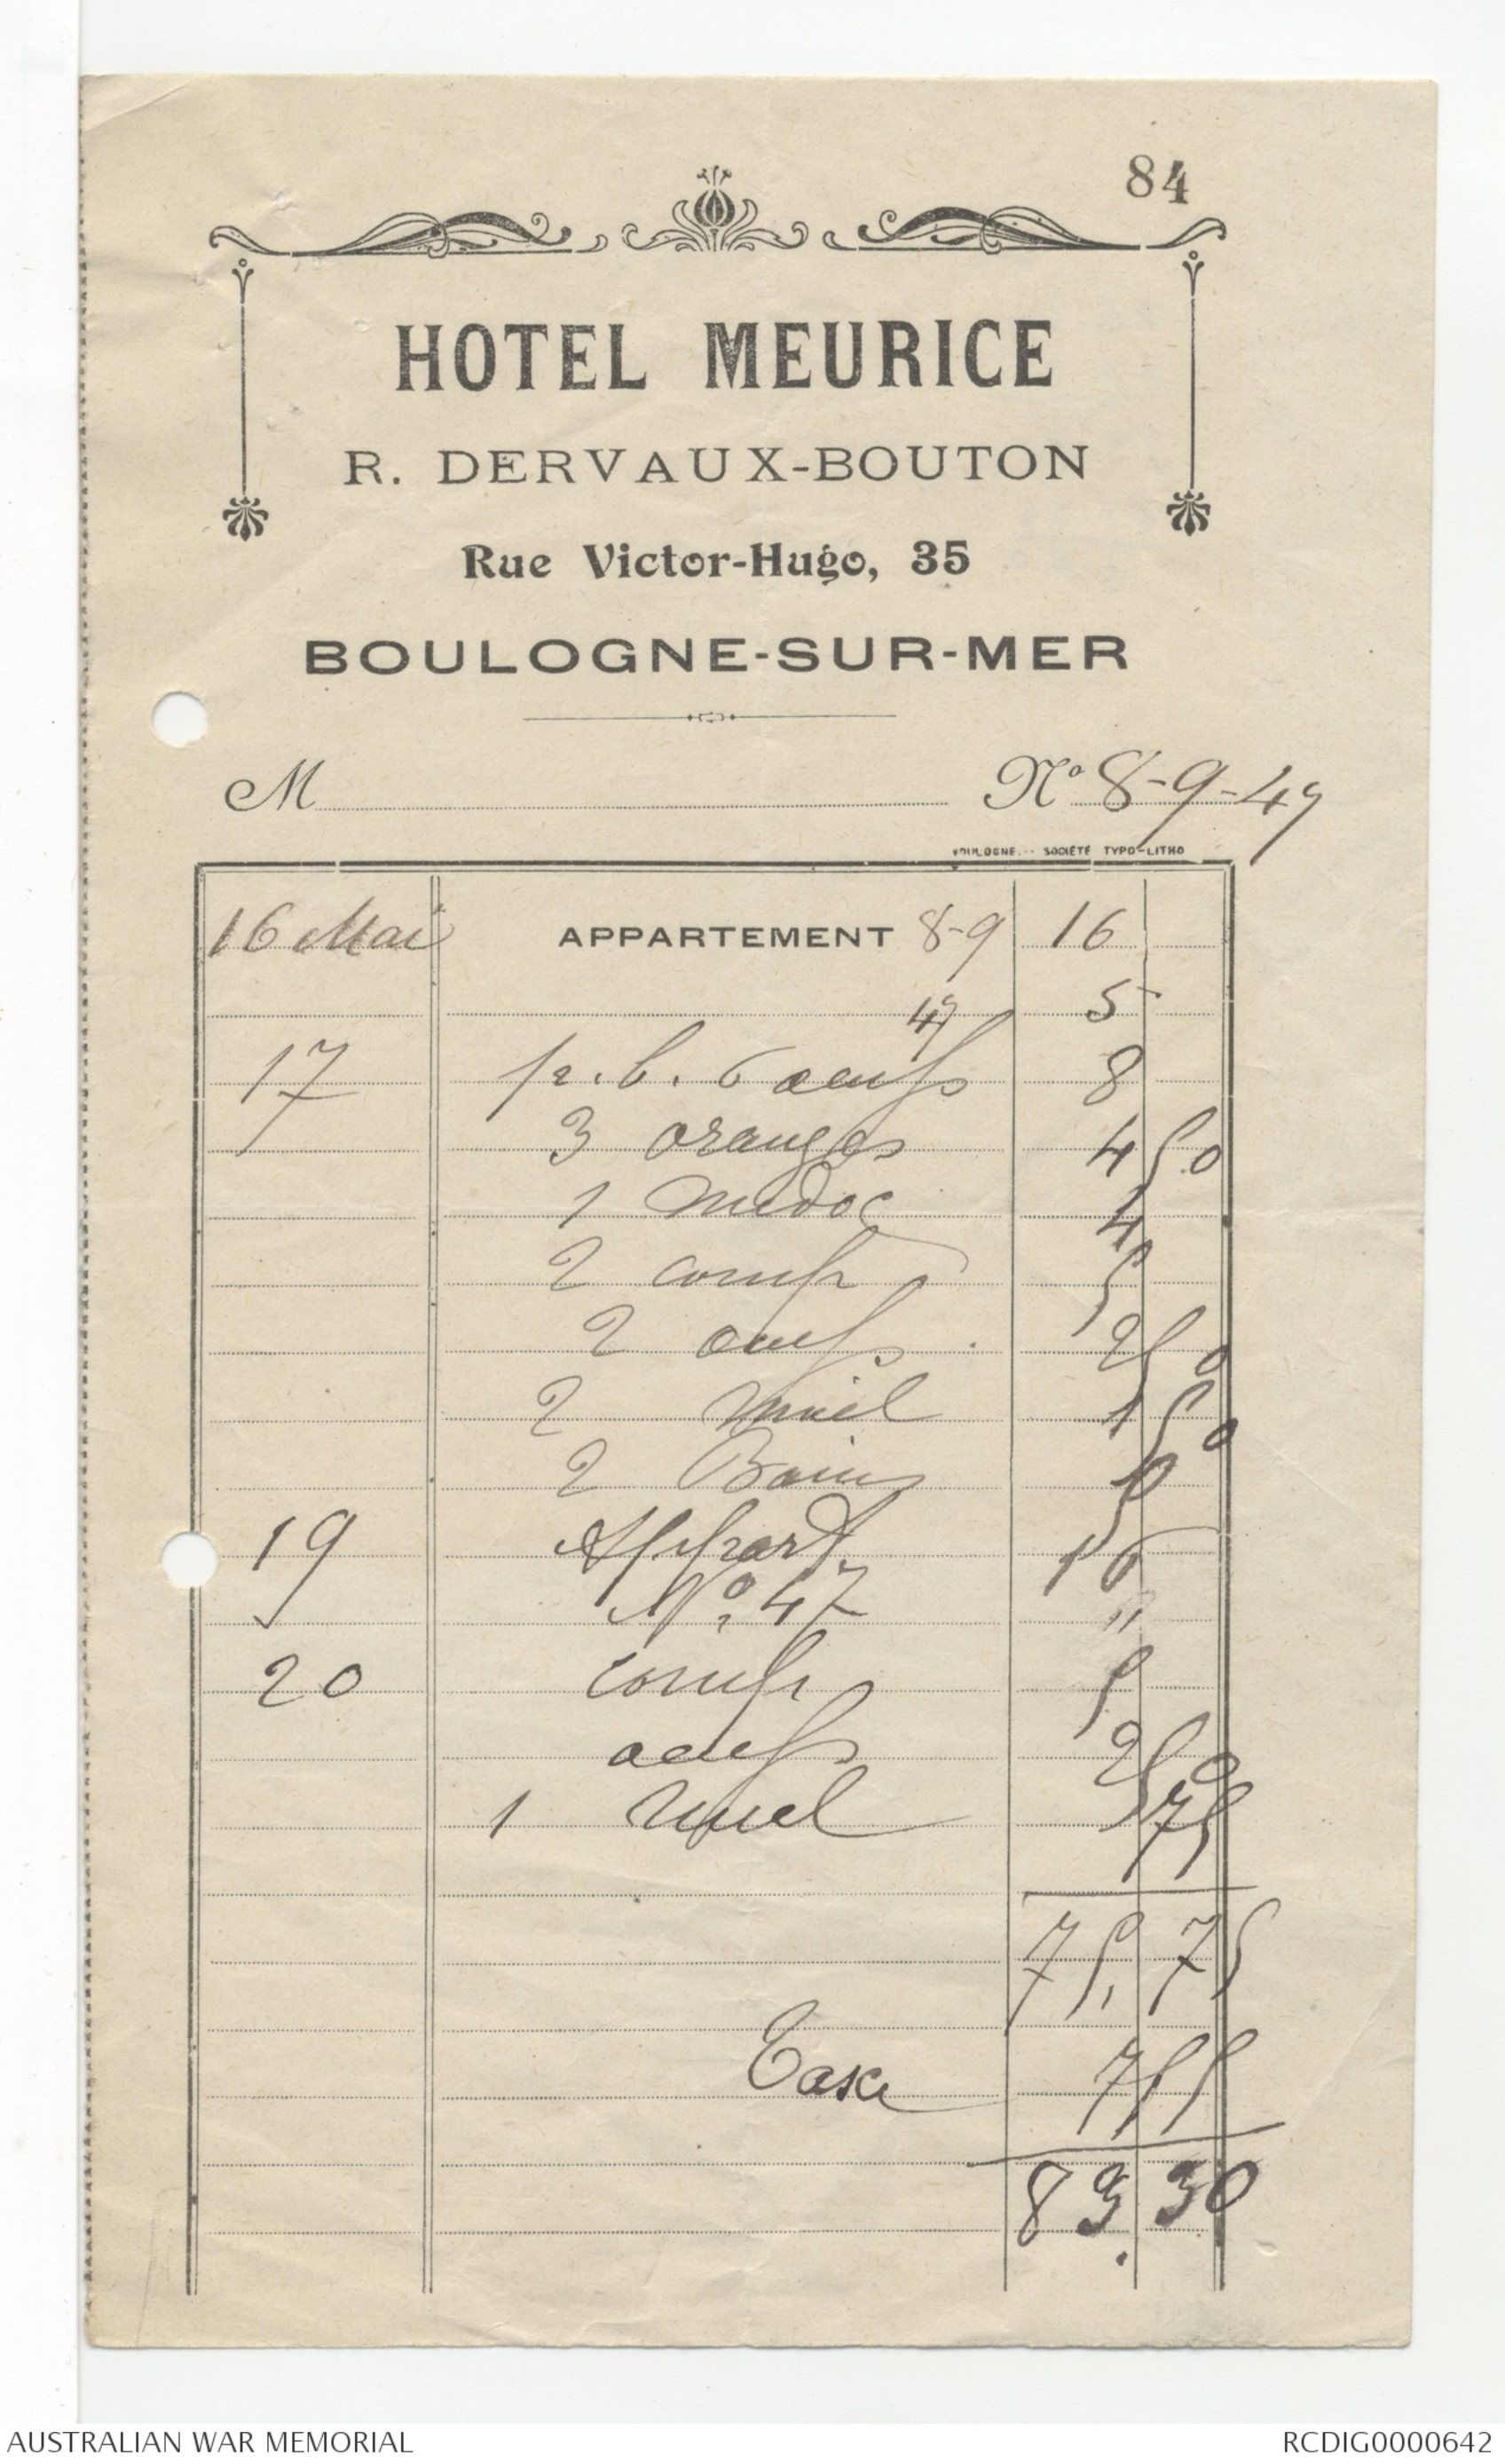 84
HOTEL MEURICE
R. DERVAUX-BOUTON
Rue Victor-Hugo, 35
BOULOGNE-SUR-MER
M Nº 8-9-47
BOULOGNE. - SOCIÉTÉ TYPO-LITHO
16 Mai APPARTEMENT 8-9 16
47 5
17 p. b. 6 oeufs 8
3 oranges 4 50
1 medoc 4
2 comp 5
2 oeufs 2 50
2 miel 1 50
2 Bains 5
19 Appart 16
Nº 47 "
20 comp 5
oeufs 2 50
1 miel 75
75,75
Taxe 7 55
83.30
AUSTRALIAN WAR MEMORIAL RCDIG0000642